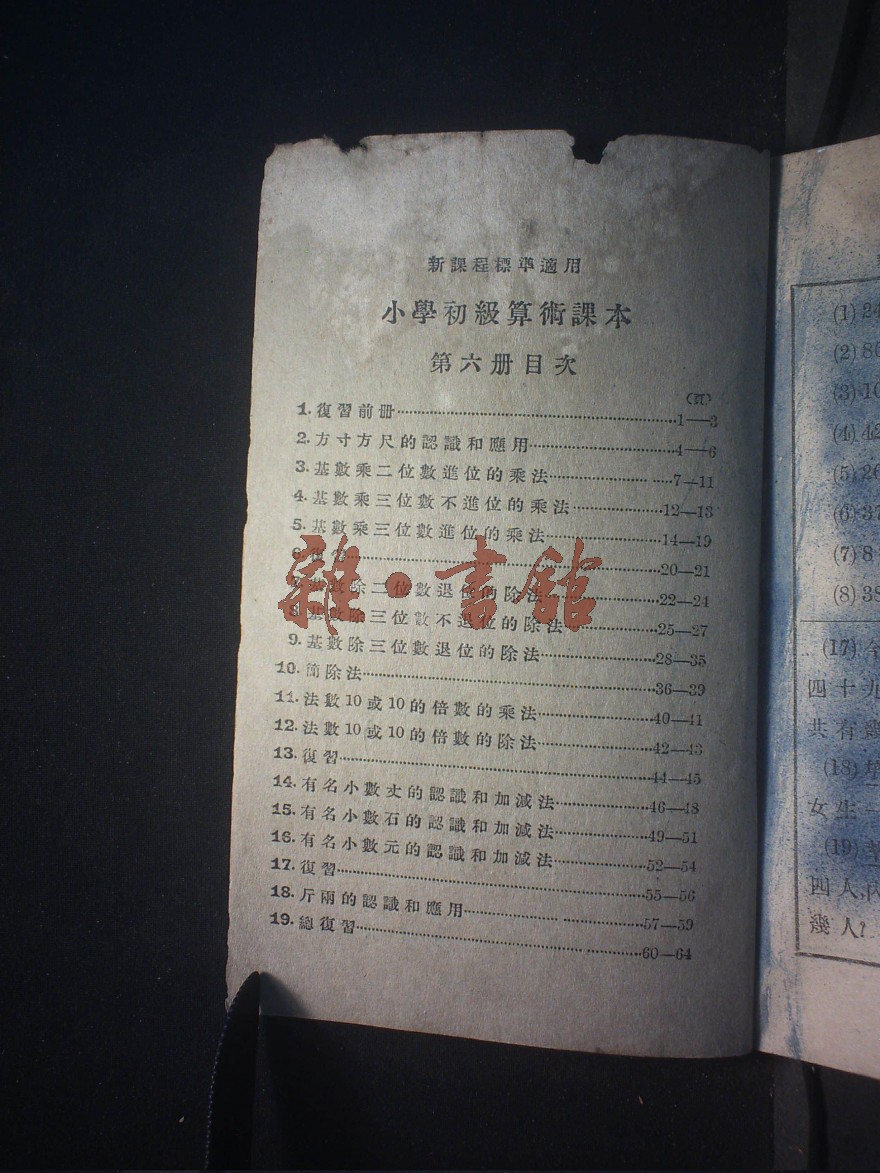 新課程標準適用
小學初級算術課本
第六册目次
(頁)
1. 復習前册……1—3
2. 方寸方尺的認識和應用……4—6
3. 基數乘二位數進位的乘法……7—11
4. 基數乘三位數不進位的乘法……12—13
5. 基數乘三位數進位的乘法……14—19
6. 復習……20—21
7. 基數除二位數退位的除法……22—24
8. 基數除三位數不退位的除法……25—27
9. 基數除三位數退位的除法……28—35
10. 簡除法……36—39
11. 法數10或10的倍數的乘法……40—41
12. 法數10或10的倍數的除法……42—43
13. 復習……44—45
14. 有名小數丈的認識和加減法……46—48
15. 有名小數石的認識和加減法……49—51
16. 有名小數元的認識和加減法……52—54
17. 復習……55—56
18. 斤兩的認識和應用……57—59
19. 總復習……60—64
雜·書館
(1) 24
(2) 86
(3) 10
(4) 42
(5) 26
(6) 37
(7) 8
(8) 38
(17)
四十九
共有幾
(18)
女生一
(19)
四人,
幾人?